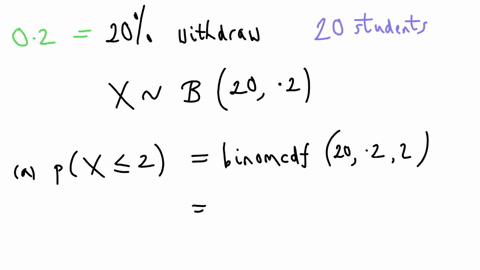 0.2 = 20% withdraw 20 students
X ~ B (20, .2)
(a) p(X ≤ 2) = binomcdf (20, .2, 2)
=